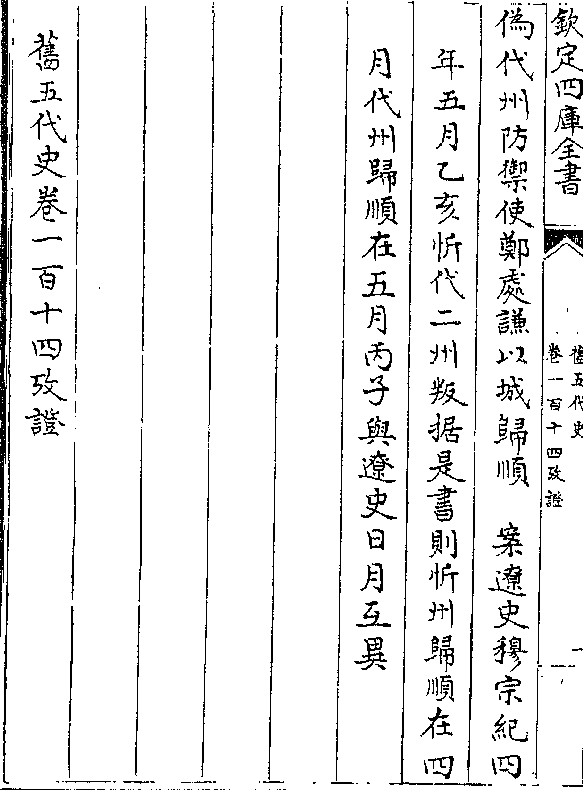 欽定四庫全書
舊五代史
卷一百十四攷證
一
偽代州防禦使鄭處謙以城歸順　案遼史穆宗紀四
年五月乙亥忻代二州叛据是書則忻州歸順在四
月代州歸順在五月丙子與遼史日月互異
舊五代史卷一百十四攷證